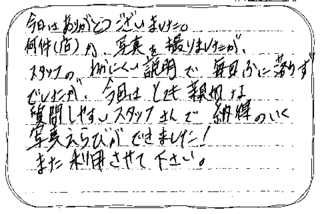 今日はありがとうございました。
何件(店)か、写真を撮りましたが、
スタッフの、わかりにくい説明で 無口ぶに 落りず
でしたが、今回は とても 親切な
質問しやすい スタッフさんで 納得のいく
写真えらびができました!
また 利用させて下さい。